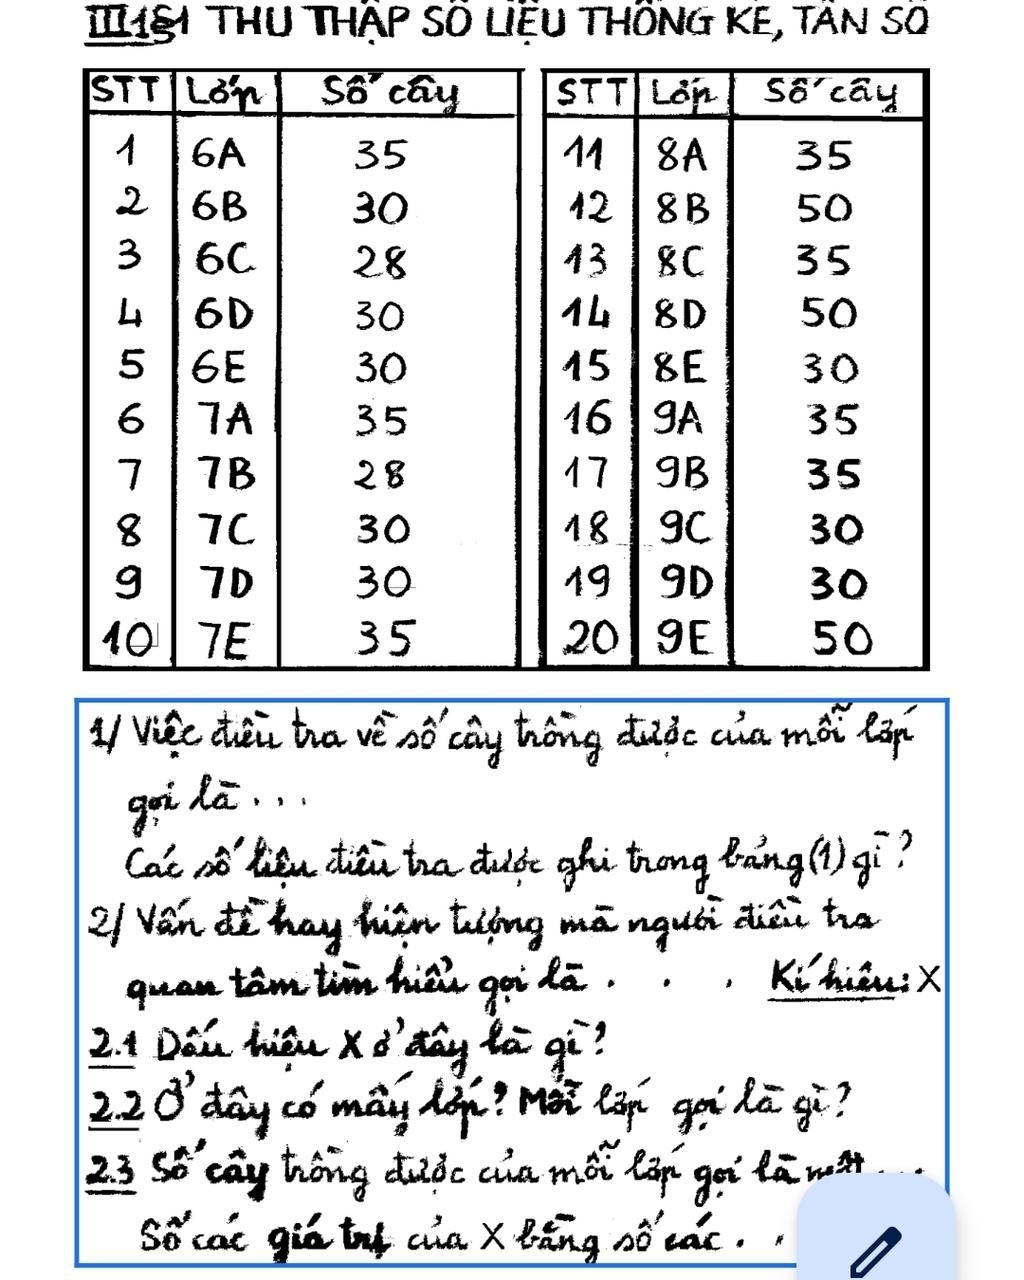 III §1 THU THẬP SỐ LIỆU THỐNG KÊ, TẦN SỐ
STT Lớp Số cây STT Lớp Số cây
1 6A 35 11 8A 35
2 6B 30 12 8B 50
3 6C 28 13 8C 35
4 6D 30 14 8D 50
5 6E 30 15 8E 30
6 7A 35 16 9A 35
7 7B 28 17 9B 35
8 7C 30 18 9C 30
9 7D 30 19 9D 30
10 7E 35 20 9E 50
1/ Việc điều tra về số cây trồng được của mỗi lớp
gọi là ...
Các số liệu điều tra được ghi trong bảng (1) gì?
2/ Vấn đề hay hiện tượng mà người điều tra
quan tâm tìm hiểu gọi là . . . Kí hiệu: X
2.1 Dấu hiệu X ở đây là gì?
2.2 Ở đây có mấy lớp? Mỗi lớp gọi là gì?
2.3 Số cây trồng được của mỗi lớp gọi là một ...
Số các giá trị của X bằng số các . .